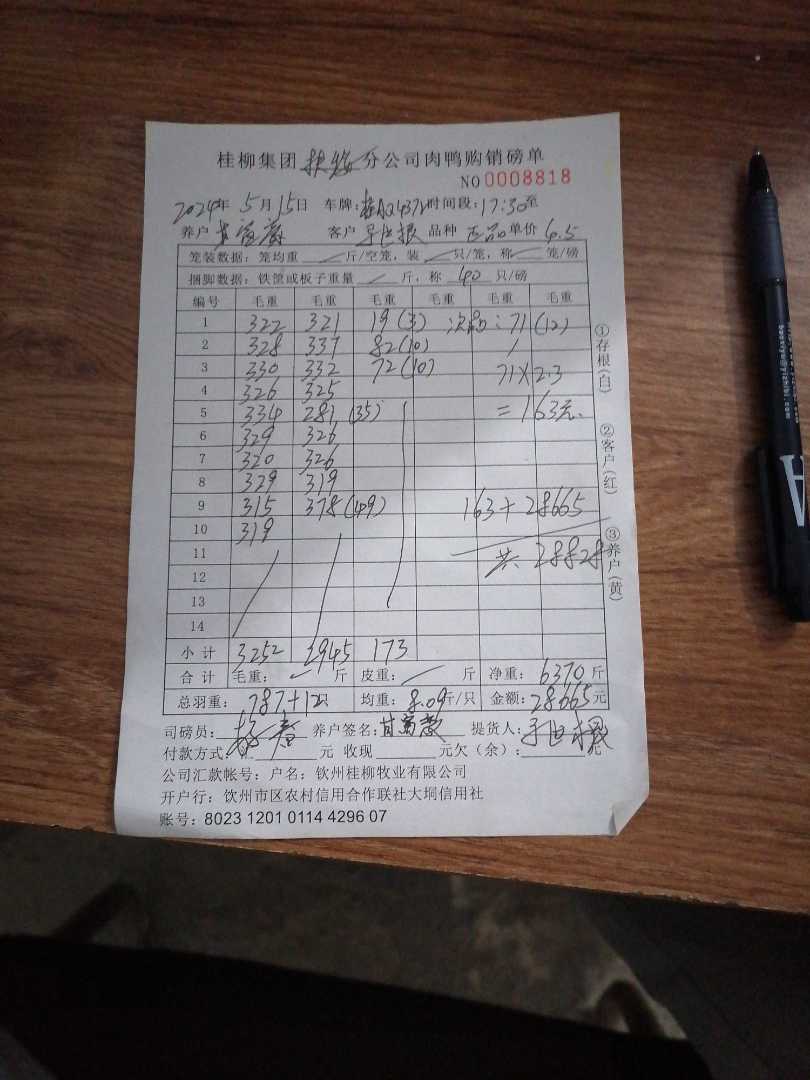 桂柳集团 分公司肉鸭购销磅单
NO 0008818
2024年 5月15日 车牌: 时间段:17:30至
养户 客户 品种 正品 单价 4.5
笼装数据:笼均重 斤/空笼,装 只/笼,称 笼/磅
捆脚数据:铁筐或板子重量 斤,称 40 只/磅
编号 毛重 毛重 毛重 毛重 毛重 毛重
1 322 321 19(3) 次品:71(12)
2 328 337 82(10)
3 330 332 72(10) 71×2.3
4 326 325
5 334 281(35) =163元
6 329 326
7 320 326
8 329 319
9 315 378(49) 163+28665
10 319
11 共 28828
12
13
14
小计 3252 2945 173
合计 毛重: 斤 皮重: 斤 净重:6370斤
总羽重: 787+12只 均重:8.09斤/只 金额:28665元
司磅员: 养户签名: 提货人:
付款方式: 元 收现 元欠(余): 元
公司汇款帐号:户名:钦州桂柳牧业有限公司
开户行:钦州市区农村信用合作联社大垌信用社
账号:8023 1201 0114 4296 07
①存根(白)
②客户(红)
③养户(黄)